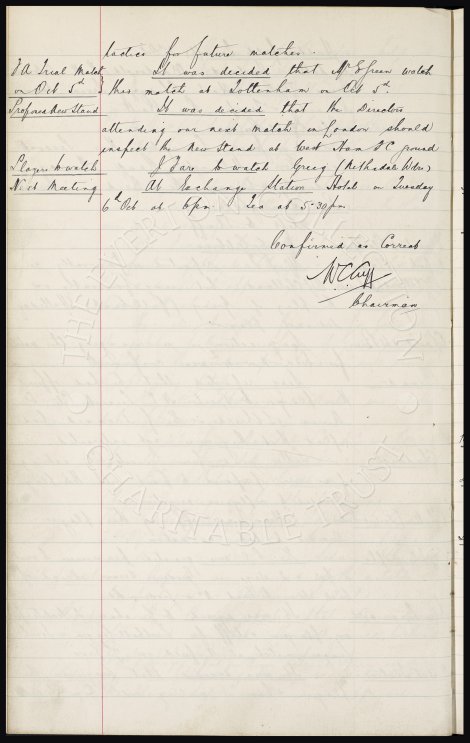 tactics for future matches.
F A Trial Match } It was decided that Mr E Green watch
on Oct 5th } this match at Tottenham on Oct 5th.
Proposed New Stand It was decided that the Directors
attending our next match in London should
inspect the New Stand at West Ham F C ground
Players to watch J Fare to watch Greig (Nethsdale Wdrs)
Next Meeting At Exchange Station Hotel on Tuesday
6th Oct at 6pm. Tea at 5-30pm
Confirmed as Correct
W.C. Cuff
Chairman
THE EVERTON COLLECTION
CHARITABLE TRUST